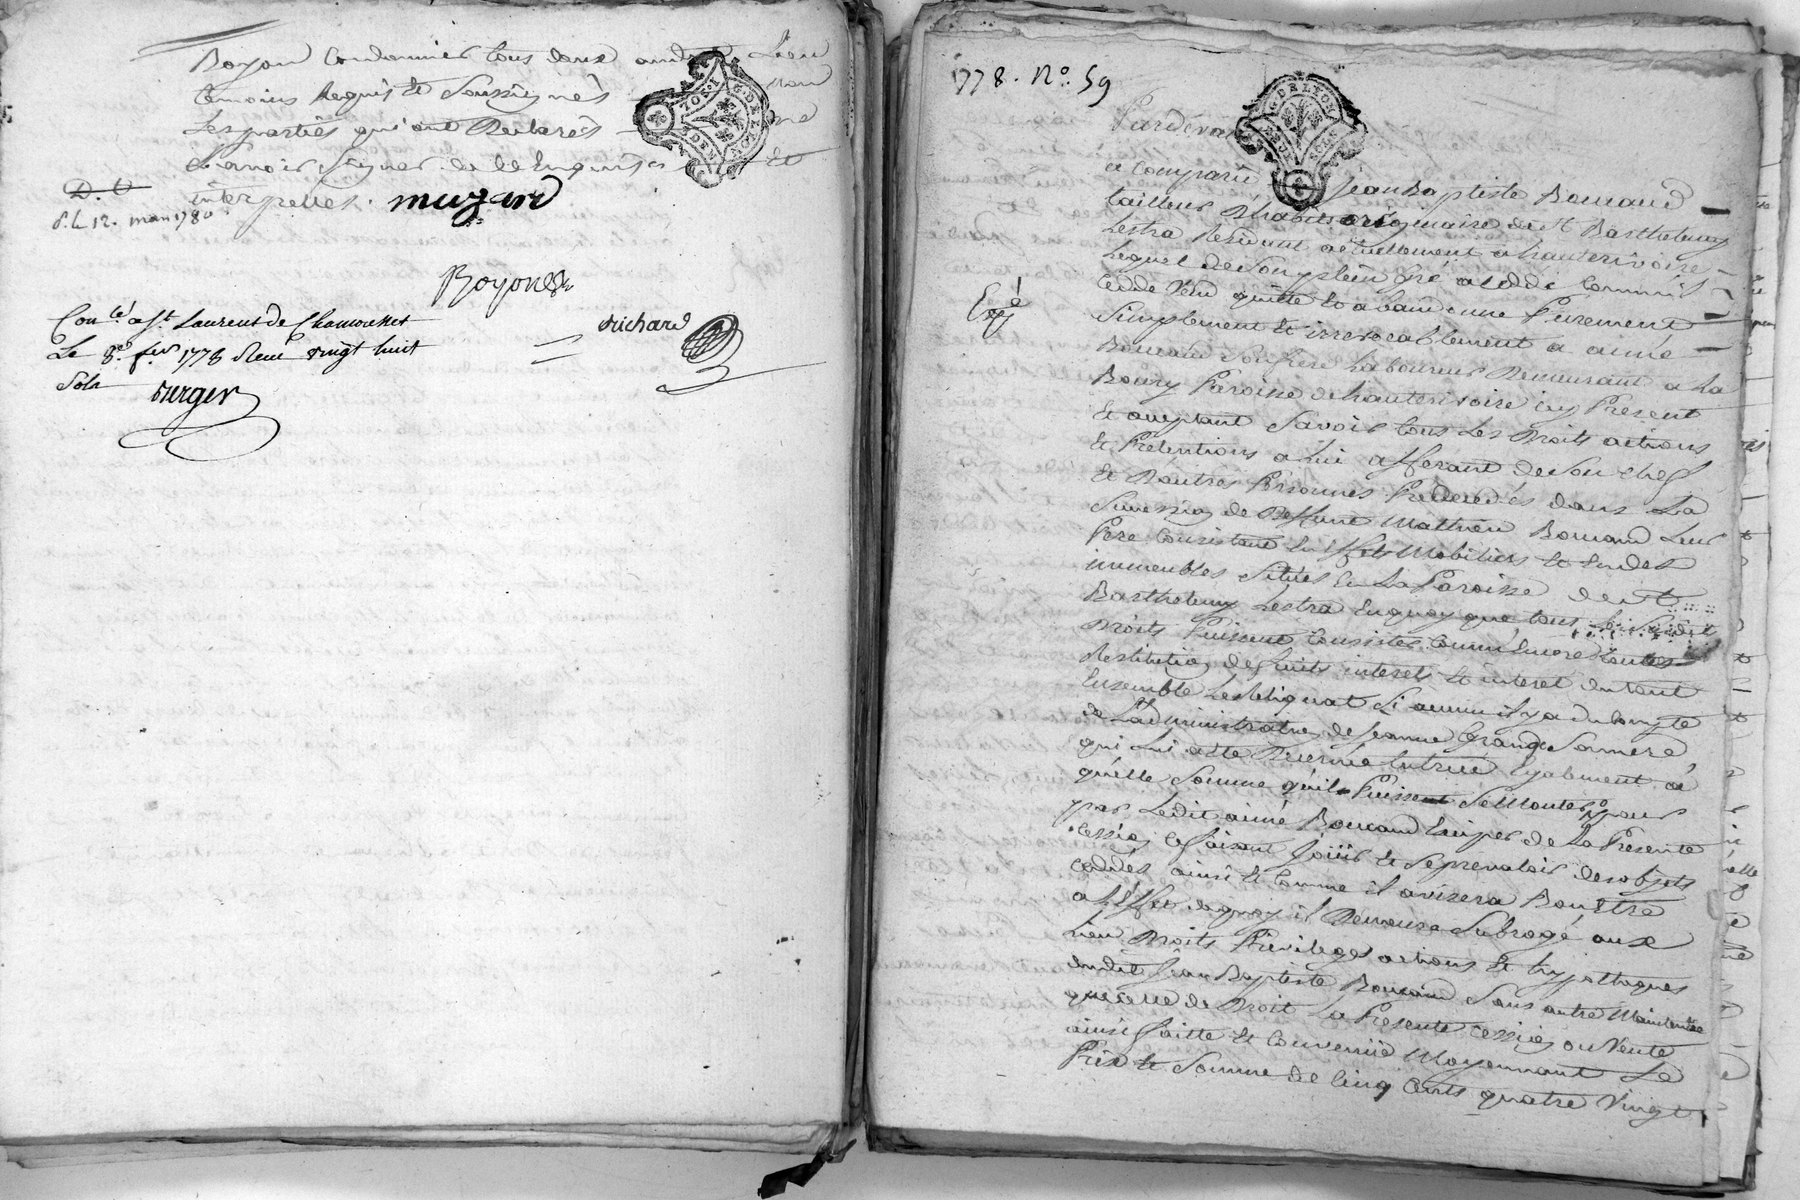 Boyon Cordonnier tous deux
temoins Requis et Soussignés
Les parties qui ont Declarés
Scavoir signer de ce Enquises et
interpellés. muzard
D. C
d. L. 12. mars 1780
Boyon
Con.lé a St. Laurent de Chamousset
Le 8e. fevr 1778 Reçu vingt huit
Sols
Berger
Richard
G. DE LYON
1778. No. 59
Pardevant
G. DE LYON
a comparu Jean Baptiste Boucaud
tailleur d'habits originaire de St Barthelemy
Lestra Residant actuellement a hauterivoire
Lequel de Son plein Gré a Cedé
Cede Vend quitte et abandonne Purement
Expé
Simplement et irrevocablement a aimé
Boucaud Son frere Laboureur Demeurant a La
Boury Paroisse de hauterivoire icy Present
Et acceptant Savoir tous Les Droits actions
Et Pretentions a lui afferant de Son chef
Et D'autres Personnes Predecedés dans La
Succession de Deffunt Mathieu Boucaud Leur
Pere Consistant En Effets Mobiliers Et En des
immeubles Situés En La Paroisse de St
Barthelemy Lestra En quoy que tous
Droits Puissent Consister Comm'Encore toutes
Restitution de fruits interets Et interet
Ensemble Le Reliquat Si aucun il y a du Compte
de L'administration de Jeanne Grange Sa mere,
qui lui a Eté Decernée tutrice Egalement a
quelle Somme qu'ils Puissent Se Monter pour
par Ledit aimé Boucaud En vertu de La Presente
Cession Jouir Et Se prevaloir des objets
cedés ainsi Et Comme il avisera Bon Etre
a L'Effet de quoy il Demeure Subrogé aux
Lieu Droits Privileges actions Et hypotheques
dudit Jean Baptiste Boucaud Sans autre Maintenue
que celle de Droit La Presente cession ou Vente
ainsi faitte Et Convenüe Moyennant Le
Prix Et Somme de Cinq Cents quatre Vingt